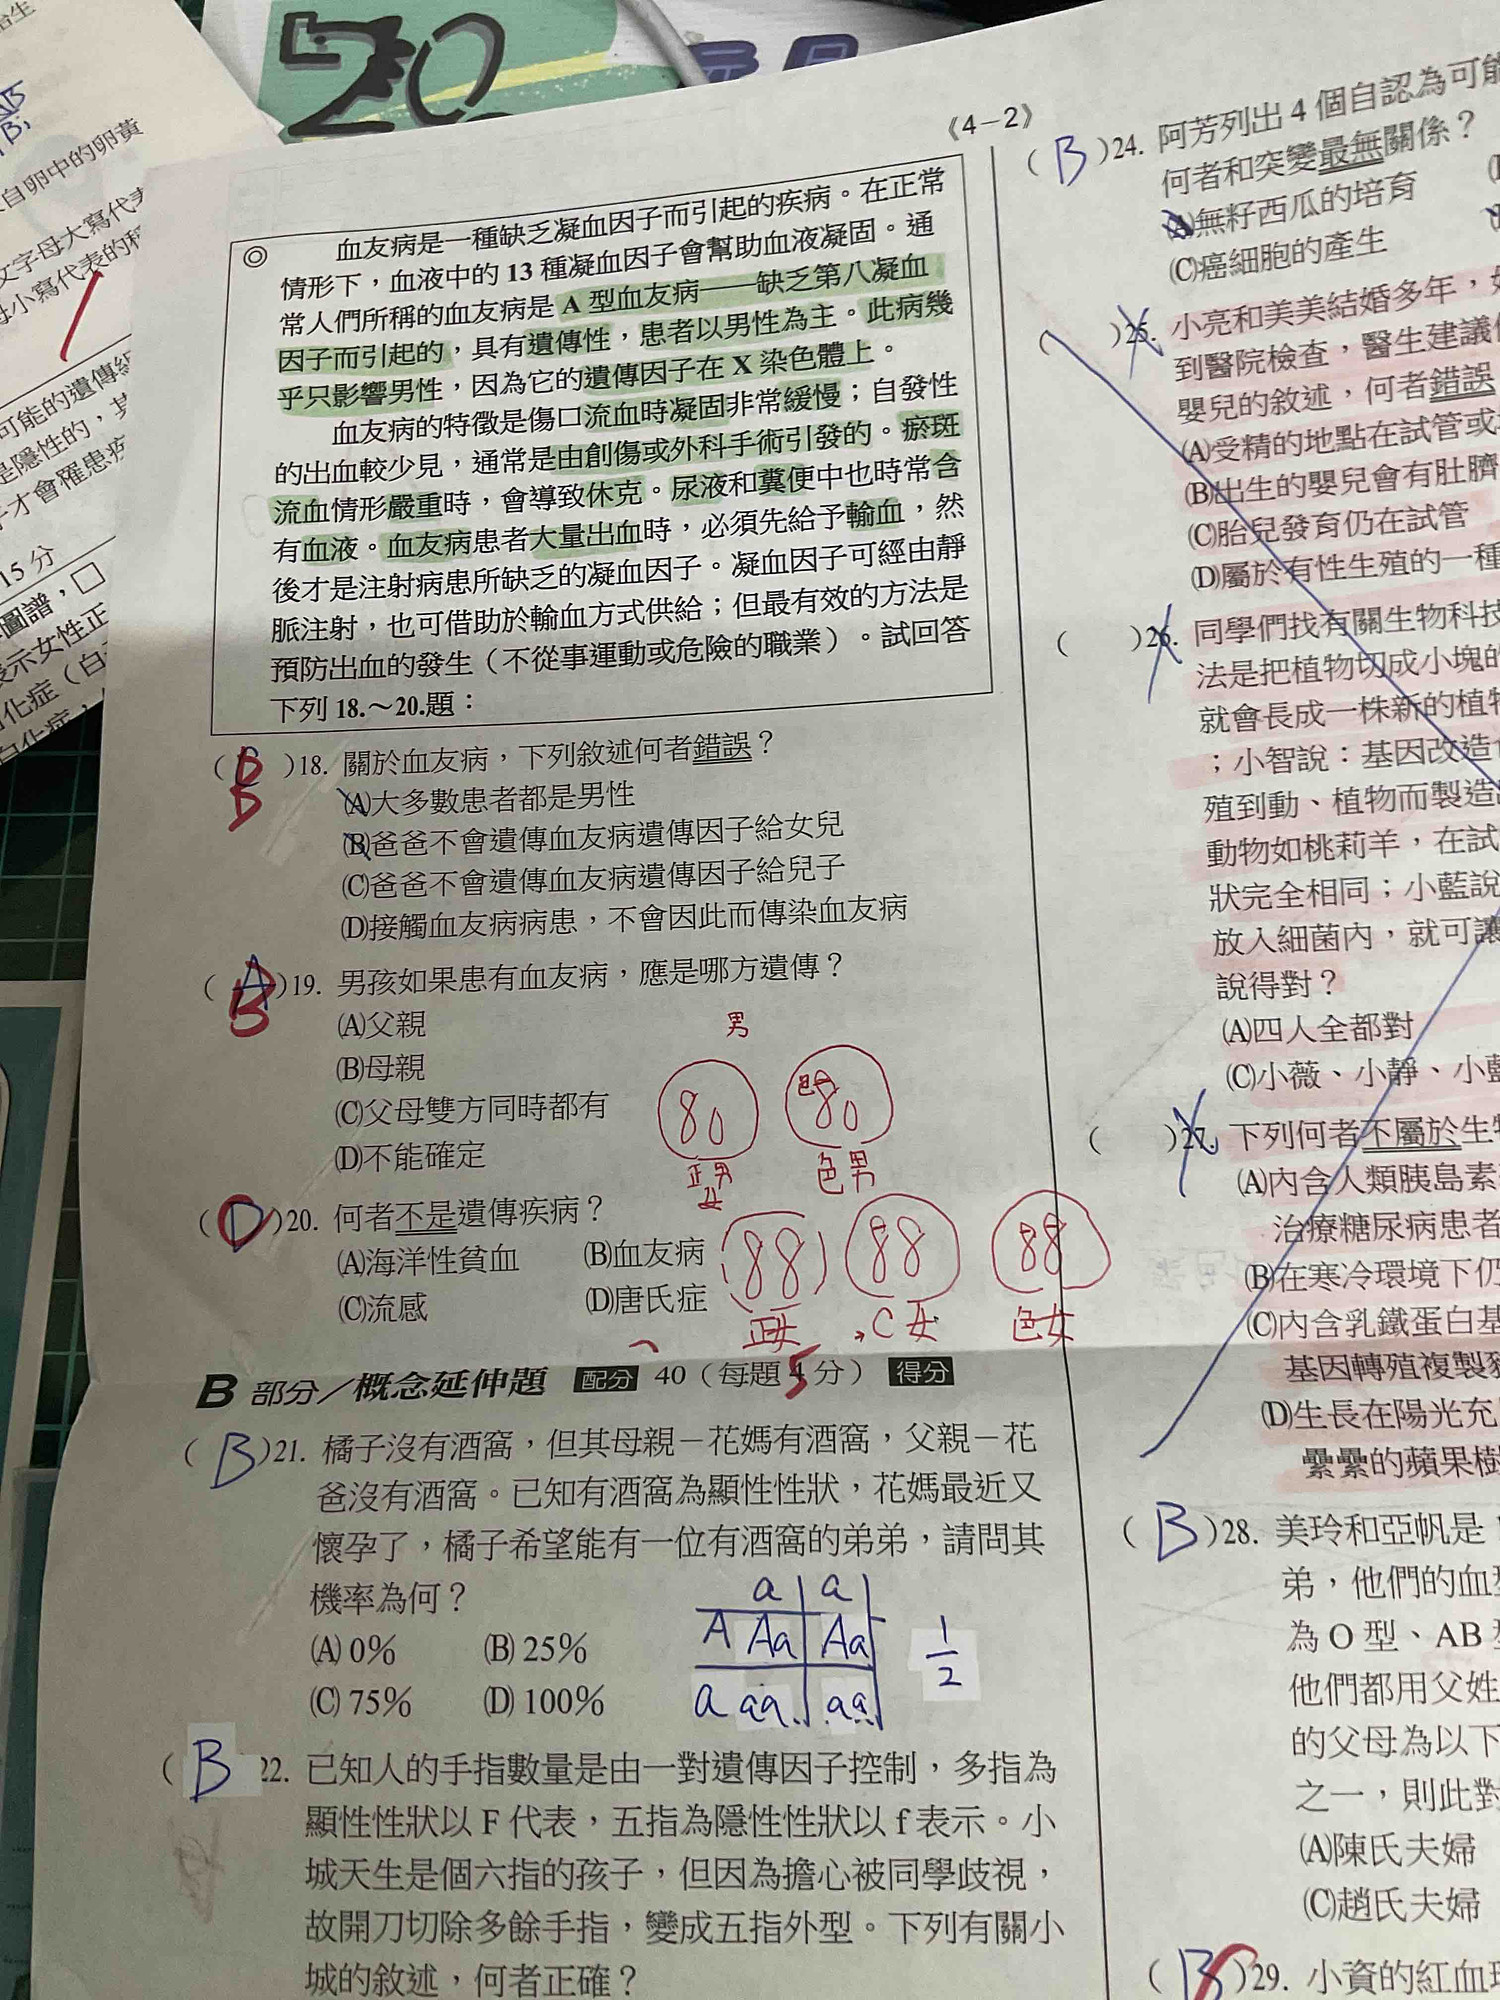 《4－2》
◎ 血友病是一種缺乏凝血因子而引起的疾病。在正常
情形下，血液中的 13 種凝血因子會幫助血液凝固。通
常人們所稱的血友病是 A 型血友病——缺乏第八凝血
因子而引起的，具有遺傳性，患者以男性為主。此病幾
乎只影響男性，因為它的遺傳因子在 X 染色體上。
血友病的特徵是傷口流血時凝固非常緩慢；自發性
的出血較少見，通常是由創傷或外科手術引發的。瘀斑
流血情形嚴重時，會導致休克。尿液和糞便中也時常含
有血液。血友病患者大量出血時，必須先給予輸血，然
後才是注射病患所缺乏的凝血因子。凝血因子可經由靜
脈注射，也可借助於輸血方式供給；但最有效的方法是
預防出血的發生（不從事運動或危險的職業）。試回答
下列 18.～20.題：
( )18. 關於血友病，下列敘述何者錯誤？
(A)大多數患者都是男性
(B)爸爸不會遺傳血友病遺傳因子給女兒
(C)爸爸不會遺傳血友病遺傳因子給兒子
(D)接觸血友病病患，不會因此而傳染血友病
( A B )19. 男孩如果患有血友病，應是哪方遺傳？
(A)父親
(B)母親
(C)父母雙方同時都有
(D)不能確定
男
正男
色男
( D )20. 何者不是遺傳疾病？
(A)海洋性貧血 (B)血友病
(C)流感 (D)唐氏症
正女
C女
色女
B 部分／概念延伸題 配分 40（每題 5 分） 得分
( B )21. 橘子沒有酒窩，但其母親－花媽有酒窩，父親－花
爸沒有酒窩。已知有酒窩為顯性性狀，花媽最近又
懷孕了，橘子希望能有一位有酒窩的弟弟，請問其
機率為何？
(A) 0% (B) 25%
(C) 75% (D) 100%
a a
A Aa Aa
a aa aa
1
2
( B 22. 已知人的手指數量是由一對遺傳因子控制，多指為
顯性性狀以 F 代表，五指為隱性性狀以 f 表示。小
城天生是個六指的孩子，但因為擔心被同學歧視，
故開刀切除多餘手指，變成五指外型。下列有關小
城的敘述，何者正確？
( B )24. 阿芳列出 4 個自認為可能
何者和突變最無關係？
(A)無籽西瓜的培育
(C)癌細胞的產生
( )25. 小亮和美美結婚多年，
到醫院檢查，醫生建議
嬰兒的敘述，何者錯誤
(A)受精的地點在試管或
(B)出生的嬰兒會有肚臍
(C)胎兒發育仍在試管
(D)屬於有性生殖的一種
( )26. 同學們找有關生物科技
法是把植物切成小塊的
就會長成一株新的植物
；小智說：基因改造
殖到動、植物而製造
動物如桃莉羊，在試
狀完全相同；小藍說
放入細菌內，就可讓
說得對？
(A)四人全都對
(C)小薇、小靜、小藍
( )27. 下列何者不屬於生物
(A)內含人類胰島素
治療糖尿病患者
(B)在寒冷環境下仍
(C)內含乳鐵蛋白基
基因轉殖複製
(D)生長在陽光充
纍纍的蘋果樹
( B )28. 美玲和亞帆是
弟，他們的血型
為 O 型、AB
他們都用父姓
的父母為以下
之一，則此對
(A)陳氏夫婦
(C)趙氏夫婦
( B )29. 小資的紅血球
自卵中的卵黃
文字母大寫代表
母小寫代表的
可能的遺傳
是隱性的，其
子才會罹患疾
15 分
圖譜，□
表示女性正
化症（白
白化症，